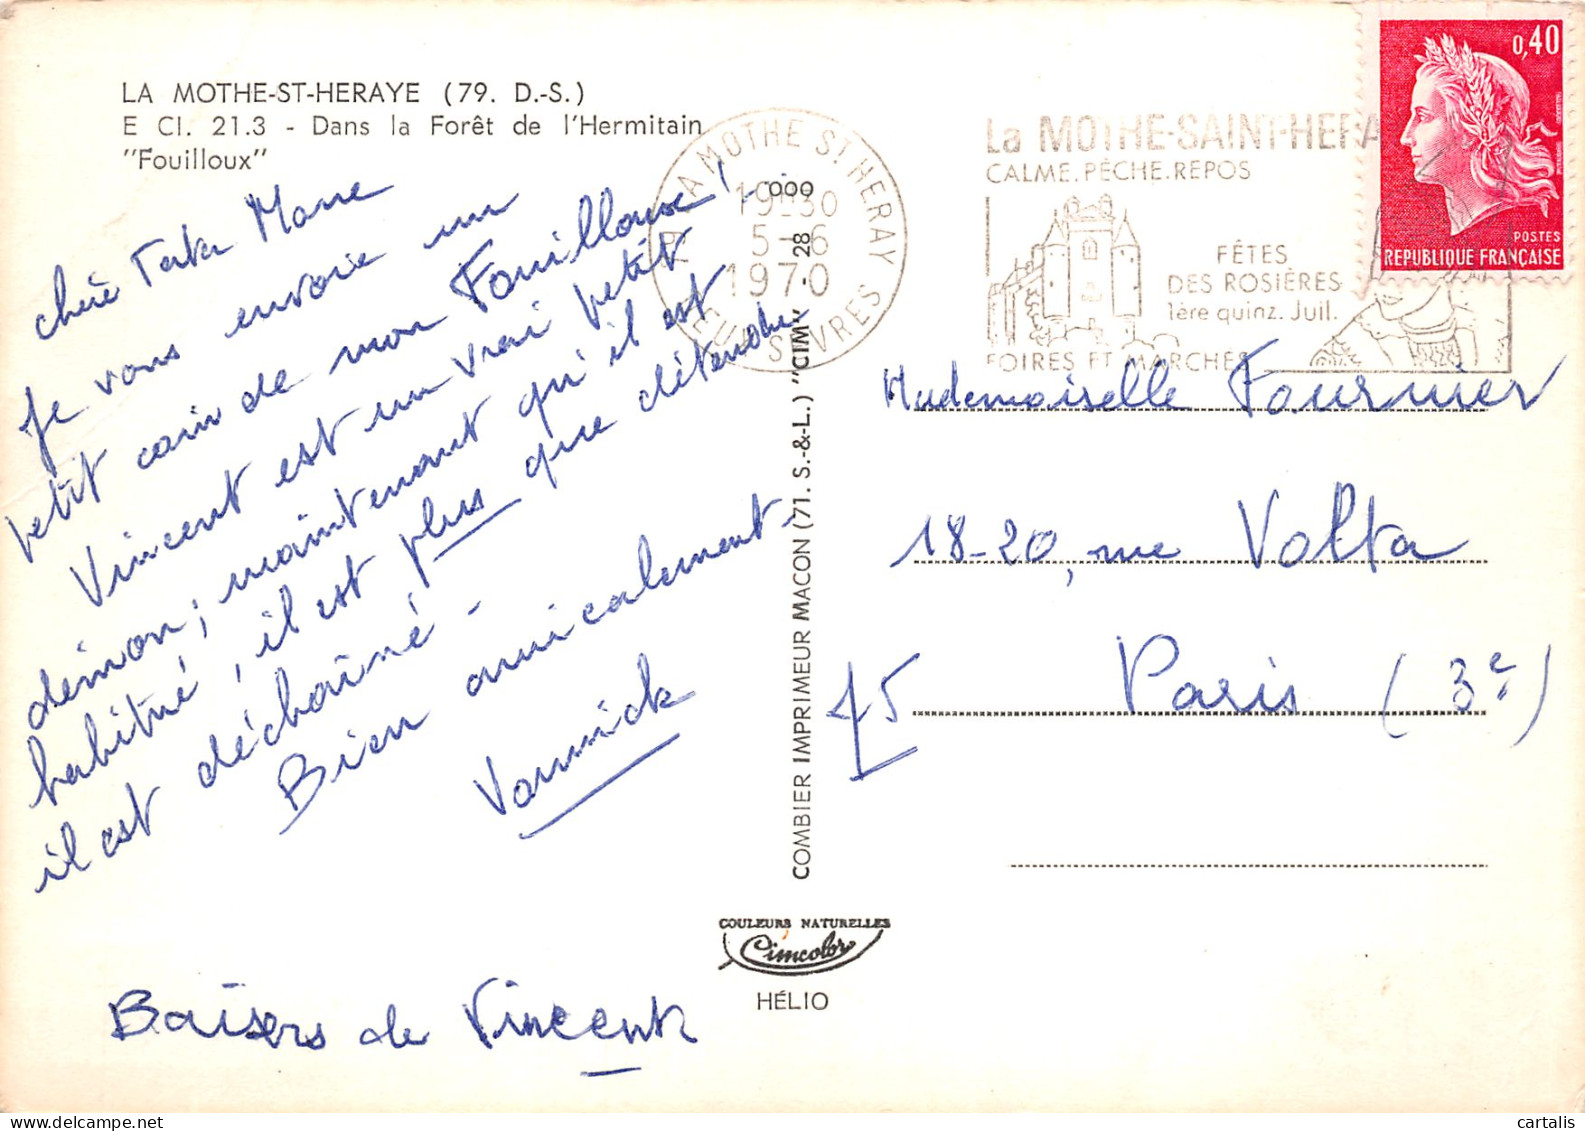 LA MOTHE-ST-HERAYE (79. D.-S.)
E Cl. 21.3 - Dans la Forêt de l'Hermitain
"Fouilloux"
chère Tata
Je vous envoie un
petit coin de mon Fouilloux !
Vincent est un vrai petit
démon ; maintenant qu'il est
habitué, il est plus que détendu
il est déchaîné -
Bien amicalement -
Baisers de Vincent
COMBIER IMPRIMEUR MACON (71. S.-&-L.) "CIM" - 28 - 000
COULEURS NATURELLES
Cimcolor
HÉLIO
LA MOTHE ST HERAY
19-30
5-6
1970
DEUX SEVRES
La MOTHE-SAINT-HERA
CALME. PÊCHE. REPOS
FÊTES
DES ROSIÈRES
1ère quinz. Juil.
FOIRES ET MARCHÉS
0,40
POSTES
REPUBLIQUE FRANÇAISE
Mademoiselle Fournier
18-20, rue Volta
75 Paris (3e)
cartalis